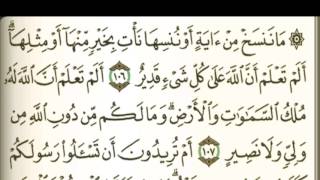 ۞ مَا نَنسَخْ مِنْ ءَايَةٍ أَوْ نُنسِهَا نَأْتِ بِخَيْرٍ مِّنْهَآ أَوْ مِثْلِهَآ ۗ
أَلَمْ تَعْلَمْ أَنَّ ٱللَّهَ عَلَىٰ كُلِّ شَىْءٍ قَدِيرٌ ١٠٦ أَلَمْ تَعْلَمْ أَنَّ ٱللَّهَ لَهُۥ
مُلْكُ ٱلسَّمَـٰوَٰتِ وَٱلْأَرْضِ ۗ وَمَا لَكُم مِّن دُونِ ٱللَّهِ مِن
وَلِىٍّ وَلَا نَصِيرٍ ١٠٧ أَمْ تُرِيدُونَ أَن تَسْـَٔلُوا۟ رَسُولَكُمْ